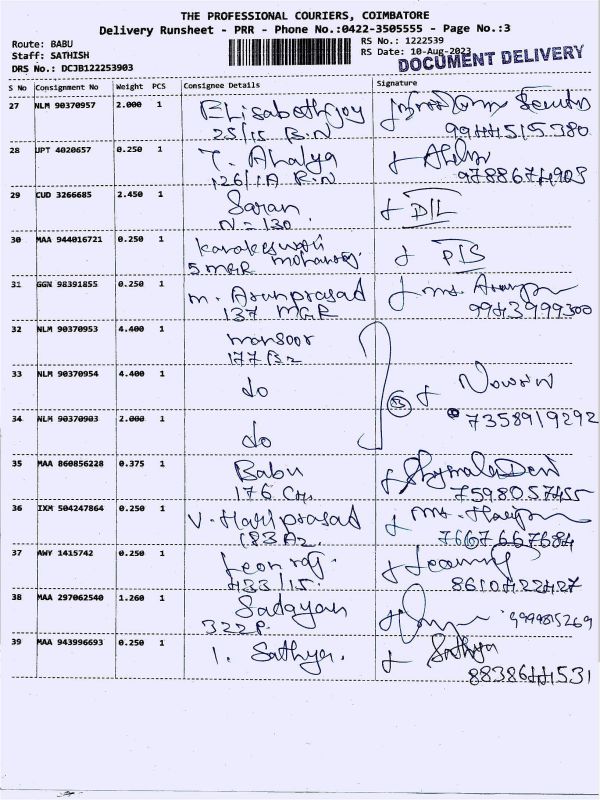 THE PROFESSIONAL COURIERS, COIMBATORE
Delivery Runsheet - PRR - Phone No.:0422-3505555 - Page No.:3
Route: BABU
RS No.: 1222539
Staff: SATHISH
RS Date: 10-Aug-2023
DOCUMENT DELIVERY
DRS No.: DCJB122253903
S No Consignment No Weight PCS Consignee Details Signature
27 NLM 90370957 2.000 1 Elisabethjoy
25/15 B.N 9944515380
28 JPT 4020657 0.250 1 T. Ahalya
126/1A R.N 9788674903
29 CUD 3266685 2.450 1 Saran D/L
N-2130
30 MAA 944016721 0.250 1 P/S
5 MGR
31 GGN 98391855 0.250 1 M. Arunprasad
137 MGR 9943999300
32 NLM 90370953 4.400 1 mansoor
177 B2
33 NLM 90370954 4.400 1 do
7358919292
34 NLM 90370903 2.000 1 do
35 MAA 860856228 0.375 1 Babu Shymala Devi
176 7598057455
36 IXM 504247864 0.250 1 V. Hariprasad
183 A2 7667667684
37 AWY 1415742 0.250 1 Leon raj
433/15 8610422427
38 MAA 297062540 1.260 1 Sadayan
322 P. 9999815269
39 MAA 943996693 0.250 1 1. Sathya. Sathya
8838644531